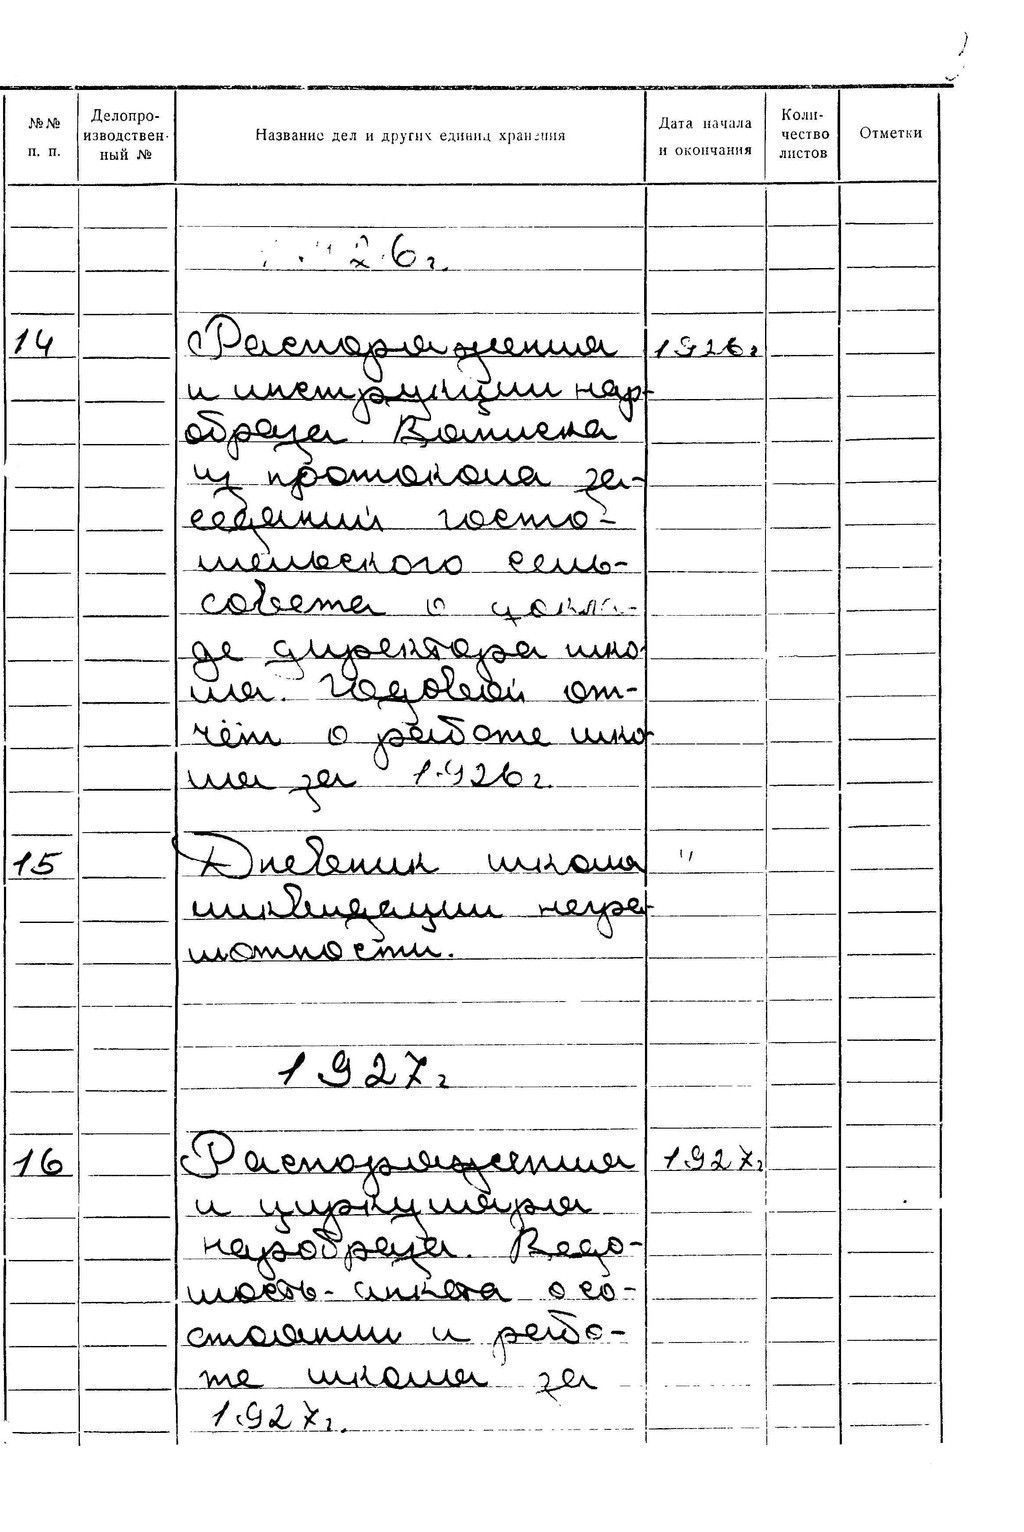 №№ п. п.
Делопро-
изводствен-
ный №
Название дел и других единиц хранения
Дата начала
и окончания
Коли-
чество
листов
Отметки
1926г.
14 Распоряжения 1926г
и инструкции нар-
образа. Выписка
из протокола за-
седаний госто-
мельского сель-
совета о докла-
де директора шко-
лы. Годовой от-
чёт о работе шко-
лы за 1926г.
15 Дневник школы "
ликвидации негра-
мотности.
1927г
16 Распоряжения 1927г
и циркуляры
наробраза. Ведо-
мость-анкета о со-
стоянии и рабо-
те школы за
1927г.